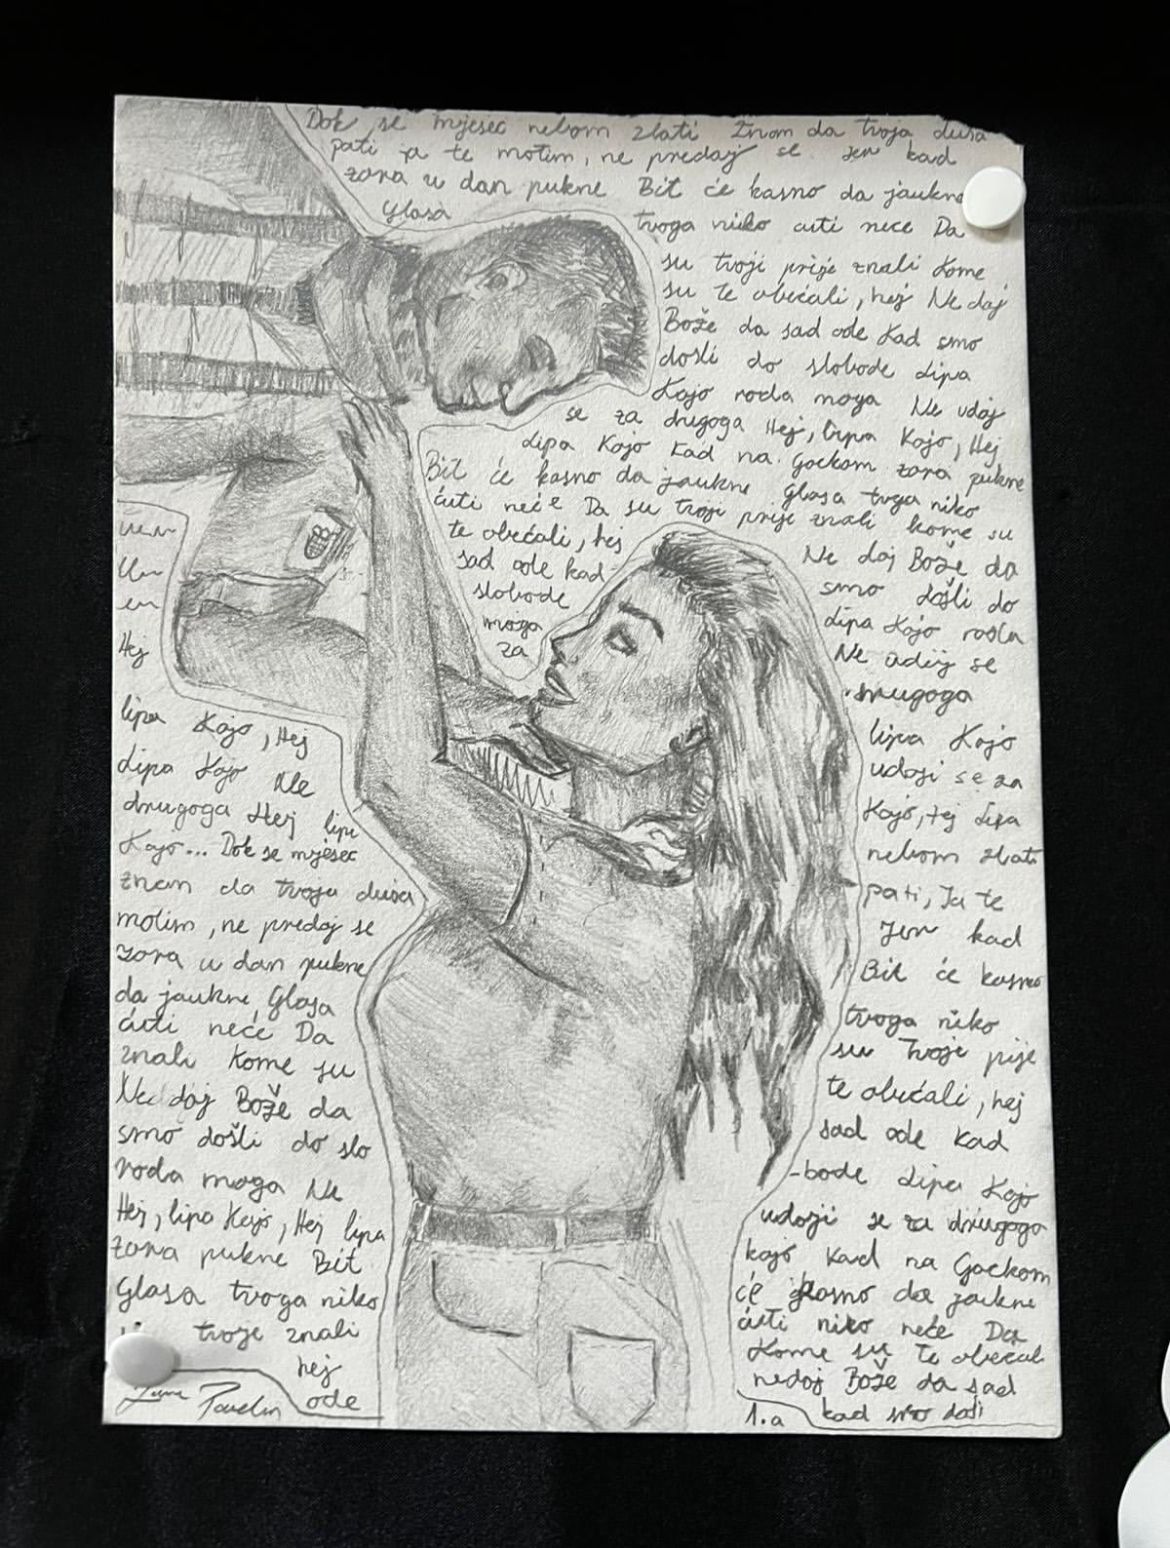 Dok se mjesec nebom zlati Znam da tvoja dusa
pati ja te molim, ne predaj se. Jer kad
zora u dan pukne Bit će kasno da jaukne
Glasa tvoga niko cuti nece Da
su tvoji prije znali Kome
su te obećali, hej Ne daj
Bože da sad ode Kad smo
došli do slobode Lipa
Kajo roda moga Ne udaj
se za drugoga Hej, Lipa Kajo, Hej
Lipa Kajo Kad na Gackom zora pukne
Bit će kasno da jaukne Glasa tvoga niko
ćuti neće Da su tvoji prije znali kome su
te obećali, hej Ne daj Bože da
sad ode kad smo došli do
slobode Lipa Kajo roda
moga Ne udaj se
za drugoga
Hej
lipa Kajo, Hej lipa Kajo
Lipa Kajo Ne udaji se za
drugoga Hej lipa Kajo, Hej Lipa
Kajo... Dok se mjesec nebom zlati
znam da tvoja dusa pati, Ja te
molim, ne predaj se Jer kad
zora u dan pukne Bit će kasno
da jaukne Glasa tvoga niko
ćuti neće Da su tvoje prije
znali Kome su te obećali, hej
Ne daj Bože da sad ode Kad
smo došli do slo -bode Lipa Kajo
roda moga Ne udaji se za drugoga
Hej, lipa Kajo, Hej lipa kajo Kad na Gackom
zora pukne Bit će kasno da jaukne
Glasa tvoga niko ćuti niko neće Da
tvoje znali Kome su te obećali
hej nedaj Bože da sad
ode kad smo došli
1.a